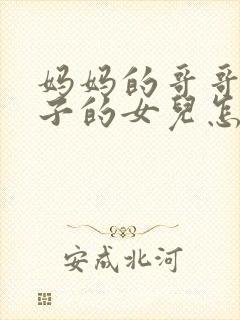 妈妈的哥哥
子的女兒怎
安成北河